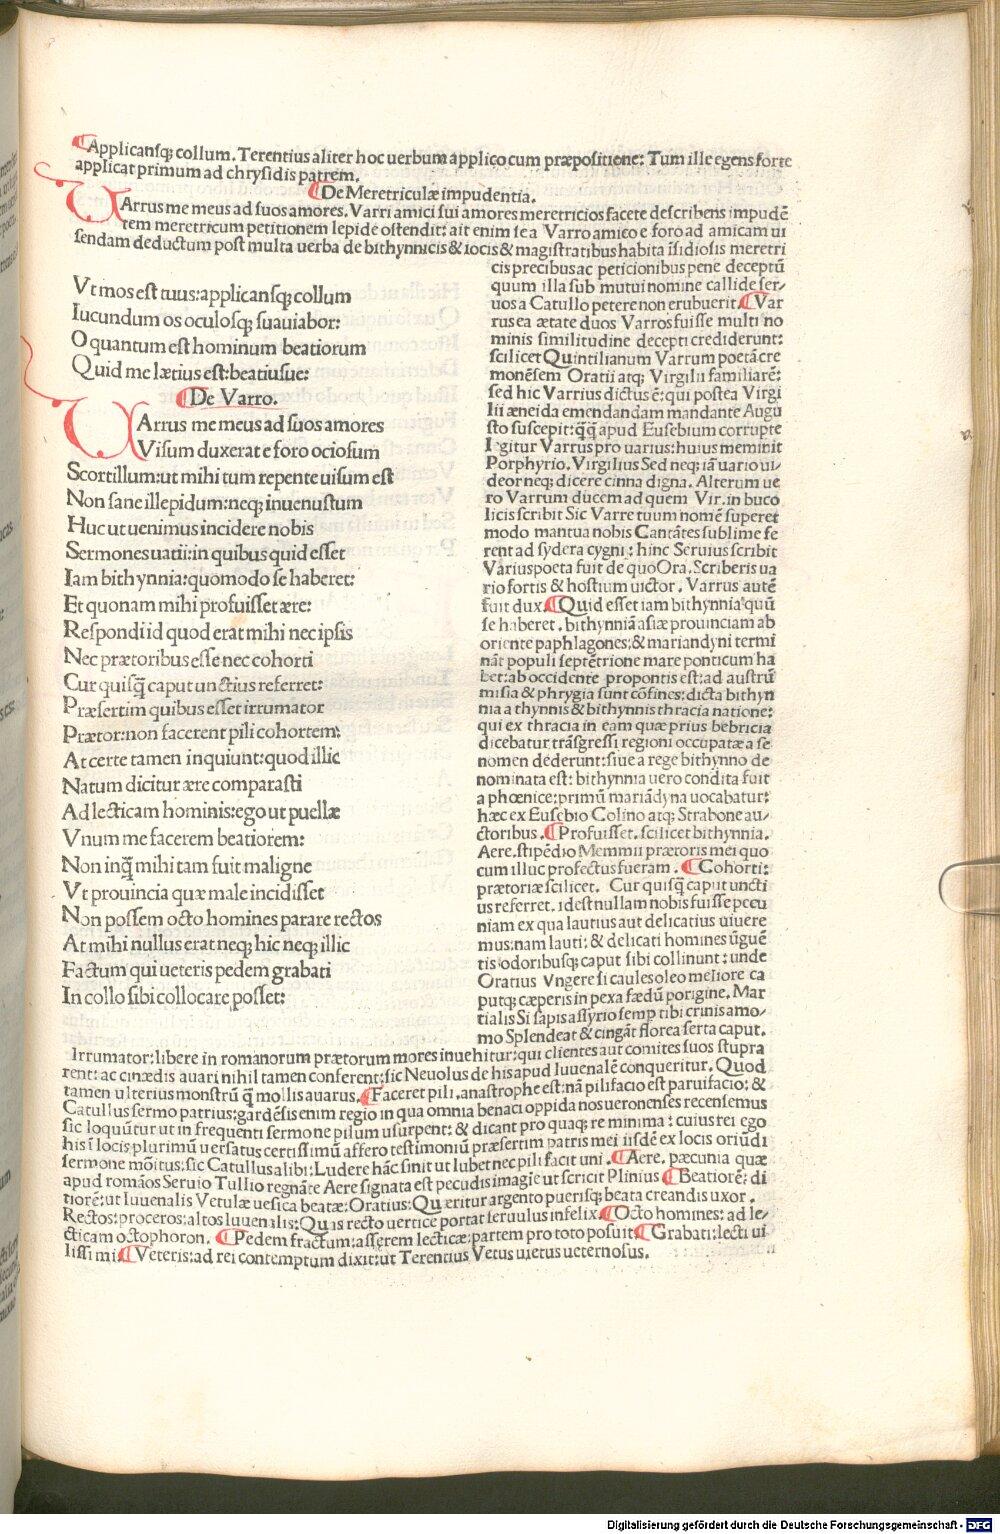 Applicansq; collum. Terentius aliter hoc uerbum applico cum præpositione: Tum ille egens forte
applicat primum ad chrysidis patrem.
De Meretriculæ impudentia.
VArrus me meus ad suos amores. Varri amici sui amores meretricios facete describens impudē
tem meretricum petitionem lepide ostendit: ait enim se a Varro amico e foro ad amicam ui
sendam deductum post multa uerba de bithynnicis & iocis & magistratibus habita īsidiosis meretri
Vt mos est tuus: applicansq; collum
Iucundum os oculosq; suauiabor:
O quantum est hominum beatiorum
Quid me lætius est: beatiusue:
De Varro.
VArrus me meus ad suos amores
Visum duxerat e foro ociosum
Scortillum: ut mihi tum repente uisum est
Non sane illepidum: neq; inuenustum
Huc ut uenimus incidere nobis
Sermones uatii: in quibus quid esset
Iam bithynnia: quomodo se haberet:
Et quonam mihi profuisset ære:
Respondi id quod erat mihi nec ipsis
Nec prætoribus esse nec cohorti
Cur quisq̄ caput unctius referret:
Præsertim quibus esset irrumator
Prætor: non facerent pili cohortem;
At certe tamen inquiunt: quod illic
Natum dicitur ære comparasti
Ad lecticam hominis: ego ut puellæ
Vnum me facerem beatiorem:
Non inq̄ mihi tam fuit maligne
Vt prouincia quæ male incidisset
Non possem octo homines parare rectos
At mihi nullus erat neq; hic neq; illic
Factum qui ueteris pedem grabati
In collo sibi collocare posset:
cis precibus ac peticionibus pene deceptū
quum illa sub mutui nomine callide ser/
uos a Catullo petere non erubuerit. Var
rus ea ætate duos Varros fuisse multi no
minis similitudine decepti crediderunt:
scilicet Quintilianum Varrum poetā cre
monēsem Oratii atq; Virgilii familiarē:
sed hic Varrius dictus ē: qui postea Virgi
lii æneida emendandam mandante Augu
sto suscepit: q̄q̄ apud Eusebium corrupte
legitur Varrus pro uarius: huius meminit
Porphyrio. Virgilius Sed neq; iā uario ui/
deor neq; dicere cinna digna. Alterum ue
ro Varrum ducem ad quem Vir. in buco
licis scribit Sic Varre tuum nomē superet
modo mantua nobis Cantātes sublime fe
rent ad sydera cygni: hinc Seruius scribit
Varius poeta fuit de quo Ora. Scriberis ua
rio fortis & hostium uictor. Varrus autē
fuit dux. Quid esset iam bithynnia quū
se haberet. bithynniā asiæ prouinciam ab
oriente paphlagones: & mariandyni termi
nāt populi septētrione mare ponticum ha
bet: ab occidente propontis est: ad austrū
misia & phrygia sunt cōfines: dicta bithyn
nia a thynnis & bithynnis thracia natione:
qui ex thracia in eam quæ prius bebricia
dicebatur trāsgressi regioni occupatæ a se
nomen dederunt: siue a rege bithynno de
nominata est: bithynnia uero condita fuit
a phœnice: primū mariādyna uocabatur:
hæc ex Eusebio Colino atq; Strabone au/
ctoribus. Profuisset. scilicet bithynnia.
Aere. stipēdio Memmii prætoris mei quo
cum illuc profectus fueram. Cohorti:
prætoriæ scilicet. Cur quisq̄ caput uncti
us referret. idest nullam nobis fuisse pecu
niam ex qua lautius aut delicatius uiuere
mus: nam lauti: & delicati homines ūguē
tis odoribusq; caput sibi collinunt: unde
Oratius Vngere si caules oleo meliore ca
putq; cæperis in pexa fædū porigine. Mar
tialis Si sapis assyrio semp tibi crinis amo/
mo Splendeat & cingāt florea serta caput.
Irrumator: libere in romanorum prætorum mores inuehitur: qui clientes aut comites suos stupra
rent: ac cinædis auari nihil tamen conferent: sic Neuolus de his apud Iuuenalē conqueritur. Quod
tamen ulterius monstrū q̄ mollis auarus. Faceret pili. anastrophe est: nā pilifacio est paruifacio: &
Catullus sermo patrius: gardēsis enim regio in qua omnia benaci oppida nos ueronenses recensemus
sic loquūtur ut in frequenti sermone pilum usurpent: & dicant pro quaq; re minima: cuius rei ego
his ī locis plurimū uersatus certissimū affero testimoniū præsertim patris mei iisdē ex locis oriūdi
sermone mōitus: sic Catullus alibi: Ludere hāc sinit ut lubet nec pili facit uni. Aere. pæcunia quæ
apud romāos Seruio Tullio regnāte Aere signata est pecudis imagīe ut scricit Plinius Beatiorē: di
tiorē: ut Iuuenalis Vetulæ uesica beatæ: Oratius: Quæritur argento puerisq; beata creandis uxor.
Rectos: proceros: altos Iuuenalis: Quis recto uertice portat seruulus infelix. Octo homines: ad le/
cticam octophoron. Pedem fractum: asserem lecticæ: partem pro toto posuit Grabati: lecti ui
lissimi. Veteris: ad rei contemptum dixit: ut Terentius Vetus uietus ueternosus.
Digitalisierung gefördert durch die Deutsche Forschungsgemeinschaft - DFG